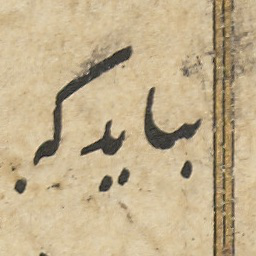 بباید که